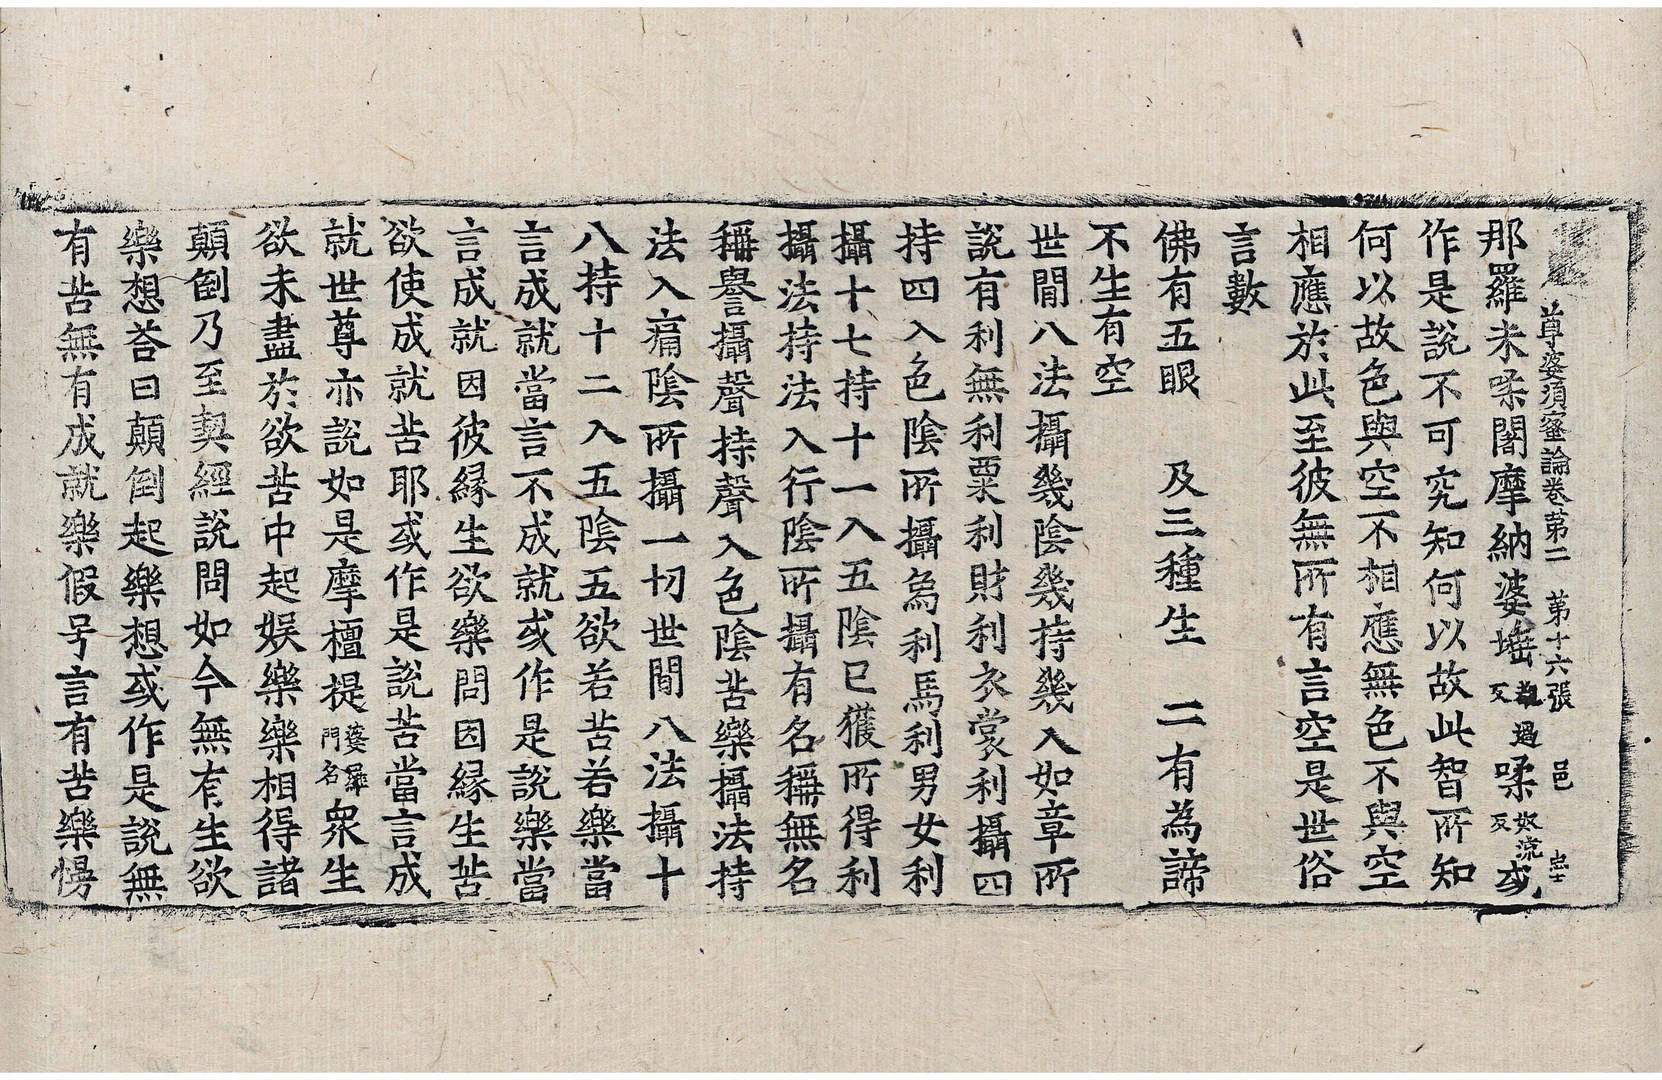 尊婆須蜜論卷苐二 苐十六張 邑 忠士
那羅未㖿闍摩納婆𡋯反 過㗁奴流反或
作是說不可究知何以故此智所知
何以故色與空不相應無色不與空
相應於此至彼無所有言空是世俗
言數
佛有五眼 及三種生 二有為諦
不生有空
世間八法攝幾陰幾持幾入如章所
說有利無利粟利財利衣裳利攝四
持四入色陰所攝爲利馬利男女利
攝十七持十一入五陰已獲所得利
攝法持法入行陰所攝有名稱無名
稱譽攝聲持聲入色陰苦樂攝法持
法入痛陰所攝一切世間八法攝十
八持十二入五陰五欲若苦若樂當
言成就當言不成就或作是說樂當
言成就因彼縁生欲樂問因縁生苦
欲使成就苦耶或作是說苦當言成
就世尊亦說如是摩檀提婆羅門名衆生
欲未盡於欲苦中起娛樂樂相得諸
顛倒乃至契經說問如今無有生欲
樂想荅曰顛倒起樂想或作是說無
有苦無有成就樂假号言有苦樂愣